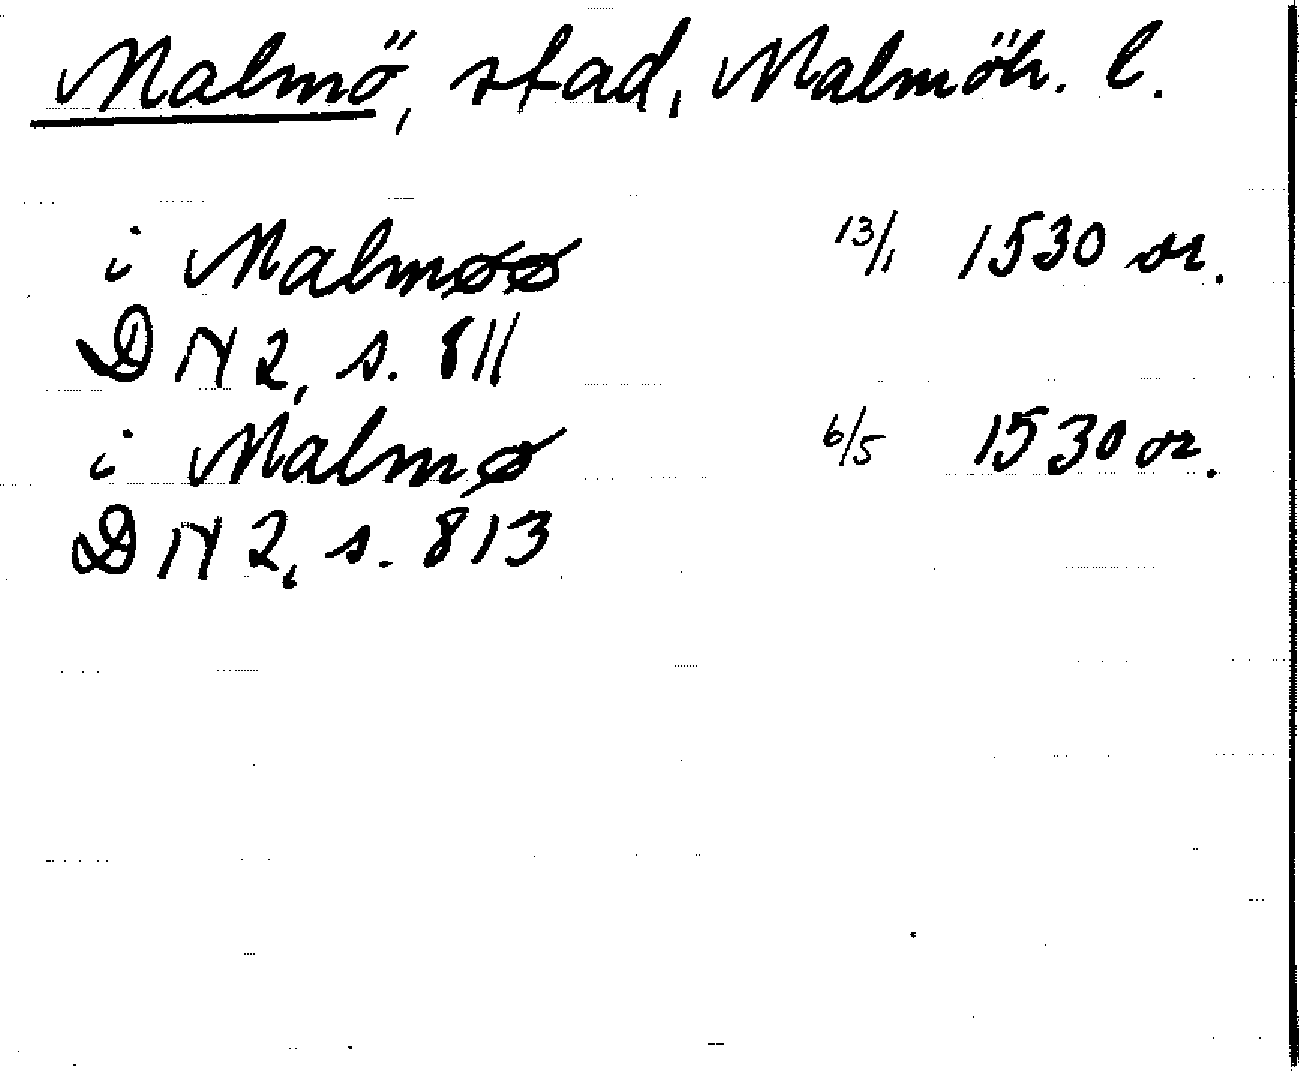 Malmö, stad, Malmöh. l.
i Malmøø 13/1 1530 or.
DN 2, s. 811
i Malmø 6/5 1530 or.
DN 2, s. 813